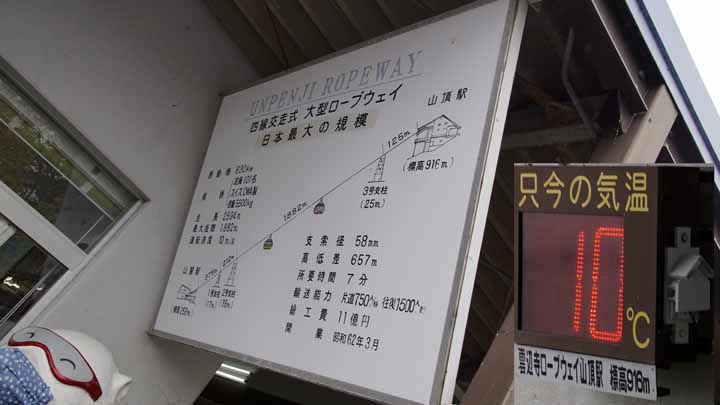 UNPENJI ROPEWAY
四線交走式 大型ロープウェイ
日本最大の規模
山頂駅
(標高916m)
125m
3号支柱
(25m)
1,882m
定員101名
スイスCWA製
全長 2,594m
最大径間 1,882m
運転速度 10m/s
山麓駅
支索径 58mm
高低差 657m
所要時間 7分
輸送能力 片道750人/h 往復1500人/h
総工費 11億円
開業 昭和62年3月
只今の気温
10℃
雲辺寺ロープウェイ山頂駅 標高916m